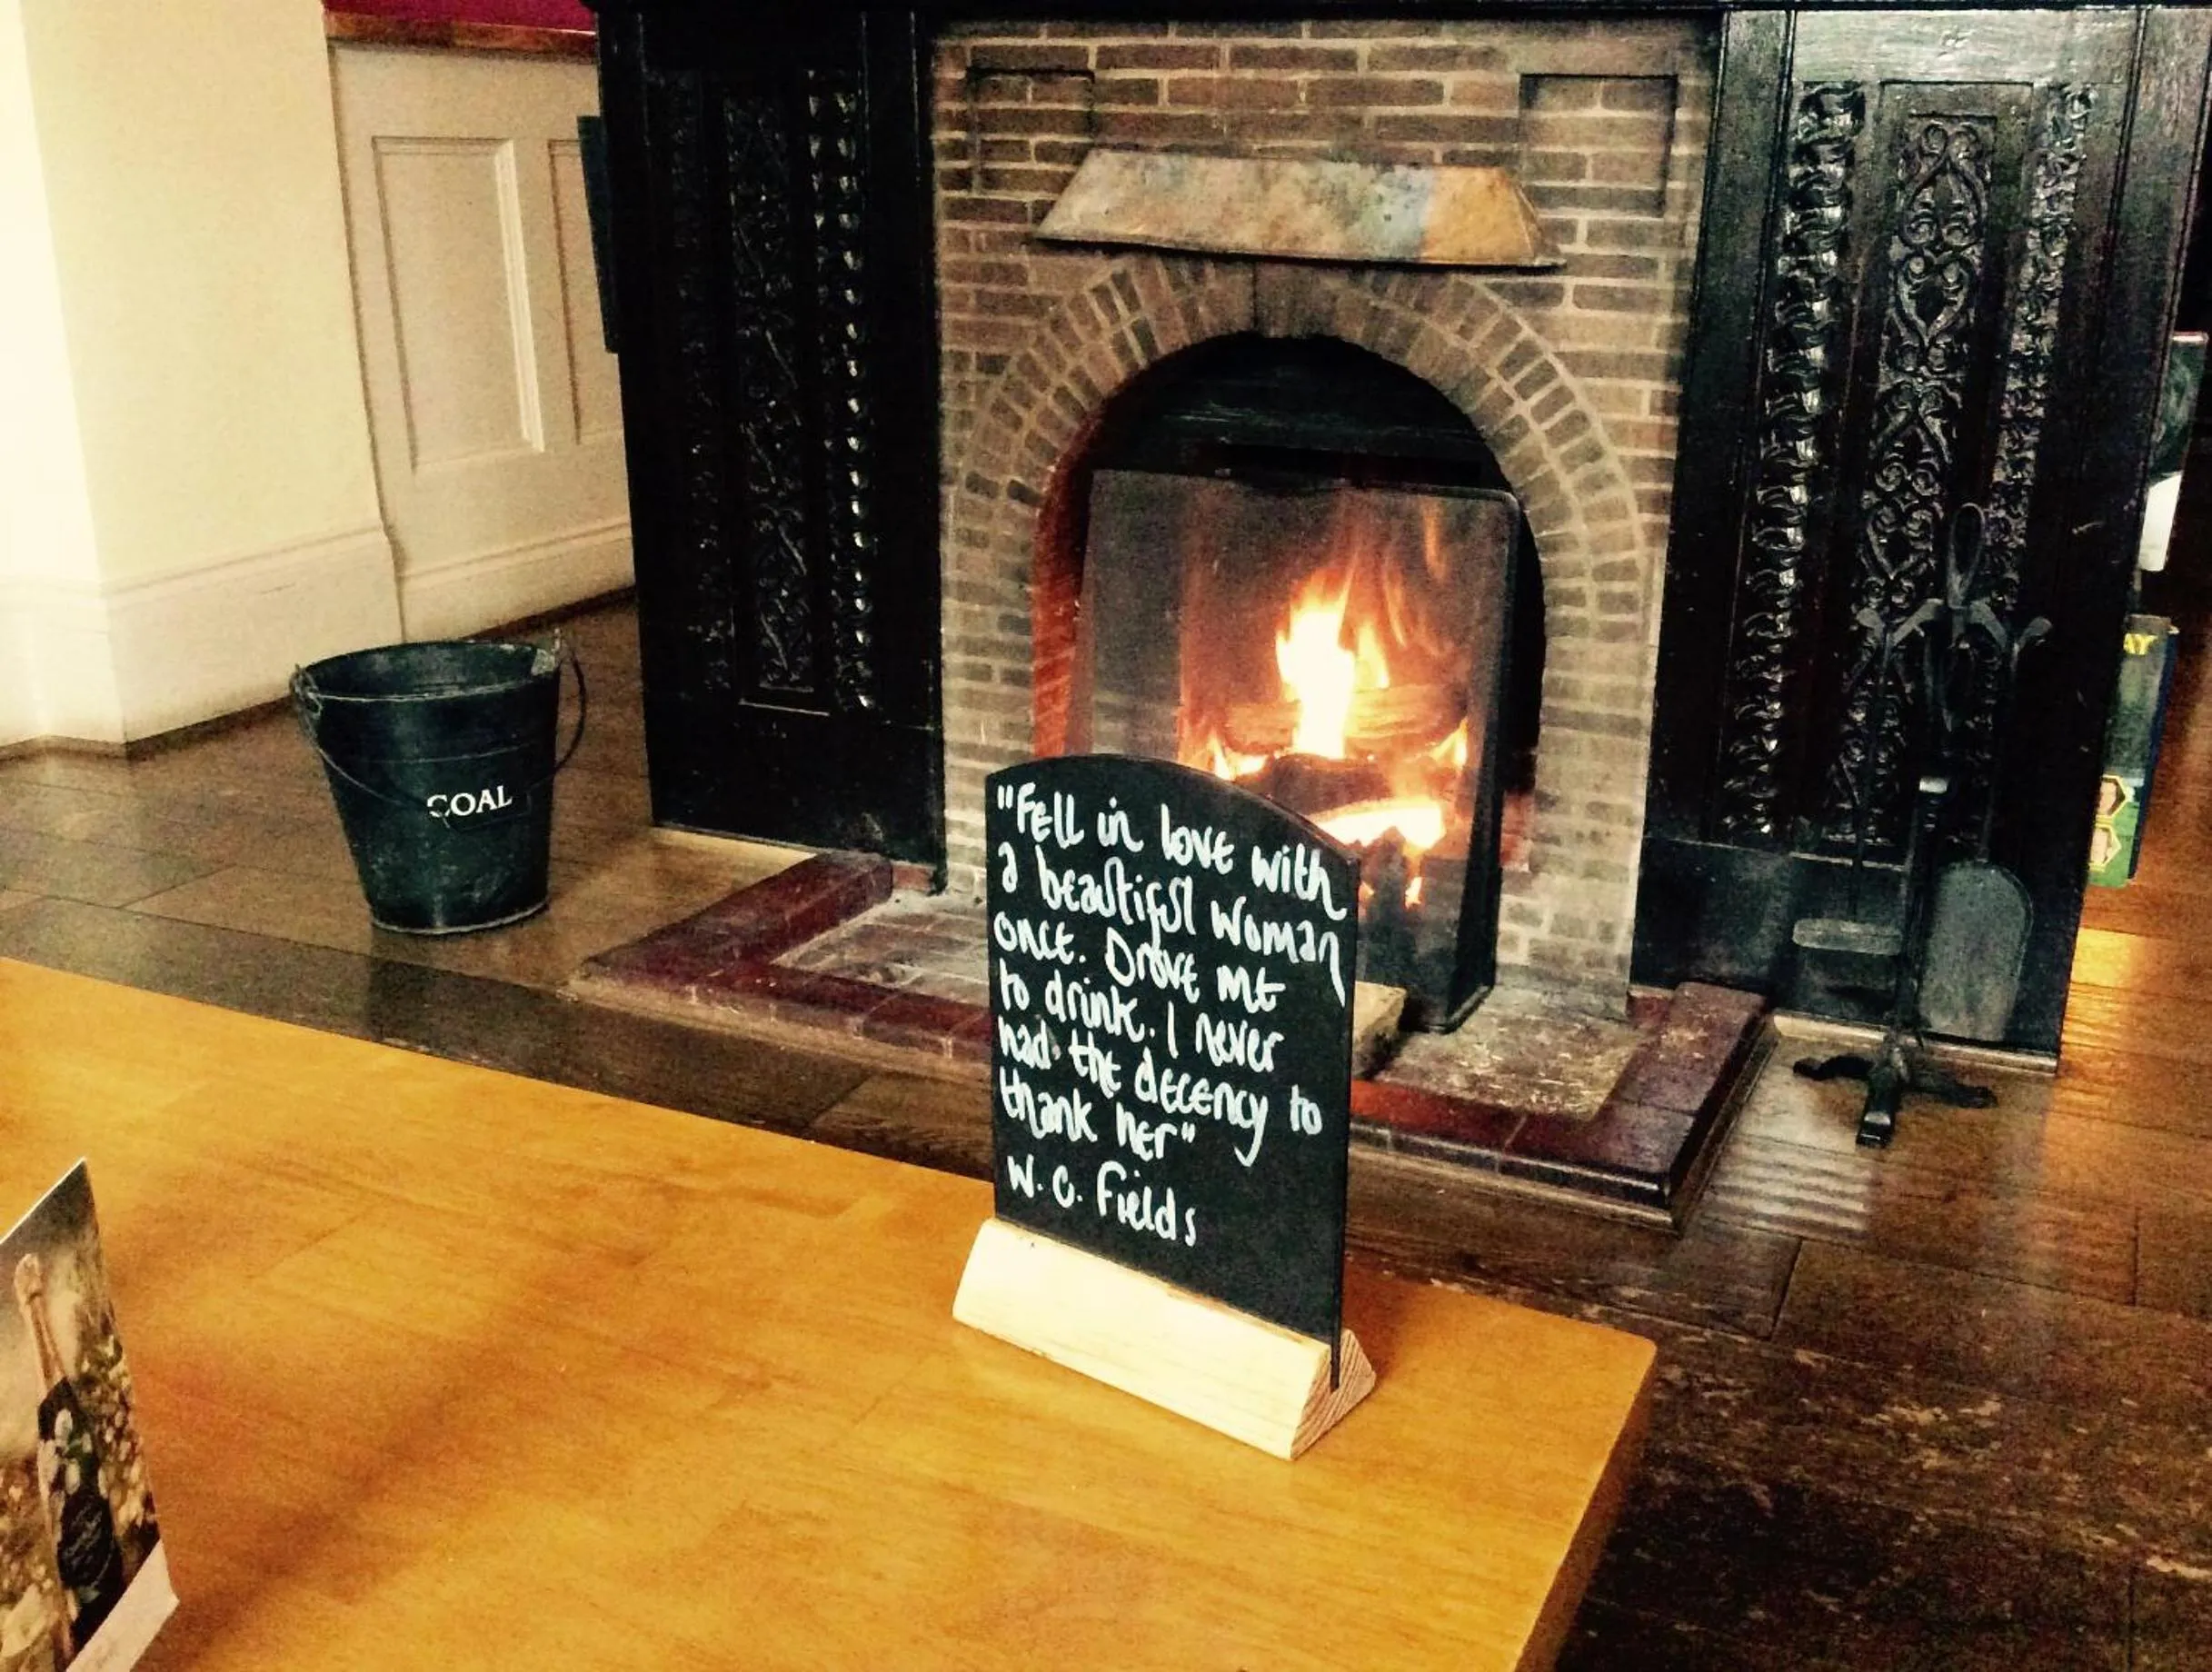 COAL
"Fell in love with
a beautiful woman
once. Drove me
to drink. I never
had the decency to
thank her"
W. C. Fields